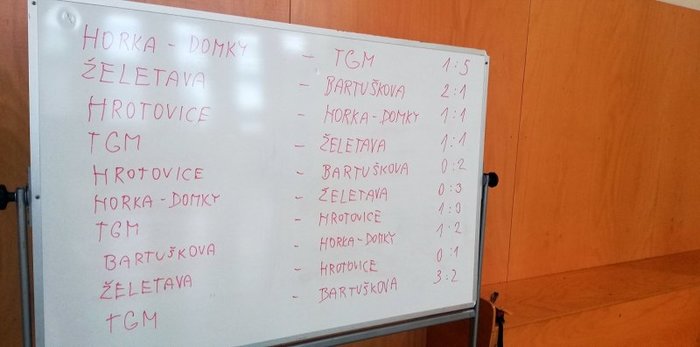 HORKA - DOMKY - TGM 1:5
ŽELETAVA - BARTUŠKOVA 2:1
HROTOVICE - HORKA - DOMKY 1:1
TGM - ŽELETAVA 1:1
HROTOVICE - BARTUŠKOVA 0:2
HORKA - DOMKY - ŽELETAVA 0:3
TGM - HROTOVICE 1:0
BARTUŠKOVA - HORKA - DOMKY 1:2
ŽELETAVA - HROTOVICE 0:1
TGM - BARTUŠKOVA 3:2